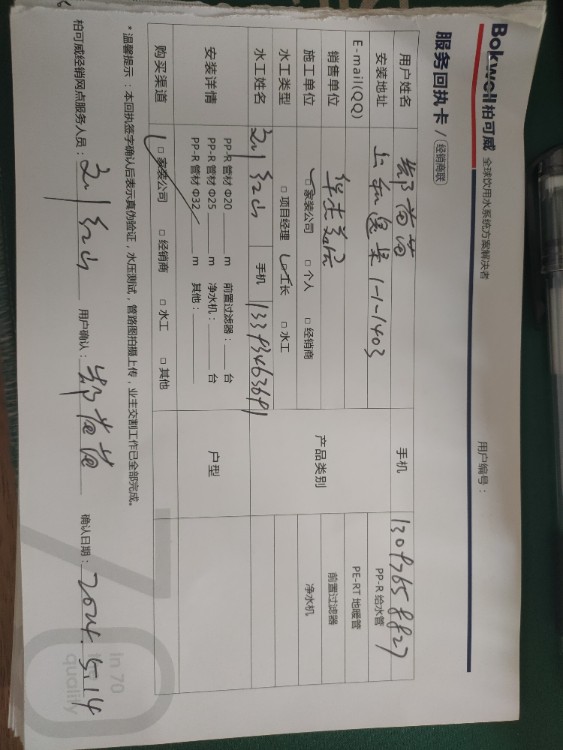 Bokwell 柏可威 全球饮用水系统方案解决者
用户编号：
服务回执卡 / 经销商联
用户姓名 手机
安装地址 上和逸景1-1-1403 PP-R 给水管
E-mail(QQ) PE-RT 地暖管
销售单位 华杰美居 产品类别 前置过滤器
施工单位 □ 家装公司 □ 个人 □ 经销商 净水机
水工类型 □ 项目经理 □ 工长 □ 水工
水工姓名 手机
安装详情 PP-R 管材 Φ20 m 前置过滤器： 台 户型
PP-R 管材 Φ25 m 净水机： 台
PP-R 管材 Φ32 m 其他：
购买渠道 □ 家装公司 □ 经销商 □ 水工 □ 其他
*温馨提示：本回执签字确认后表示真伪验证，水压测试，管路图拍摄上传，业主交割工作已全部完成。
柏可威经销网点服务人员： 用户确认： 确认日期：2024.5.14
In 70
quality